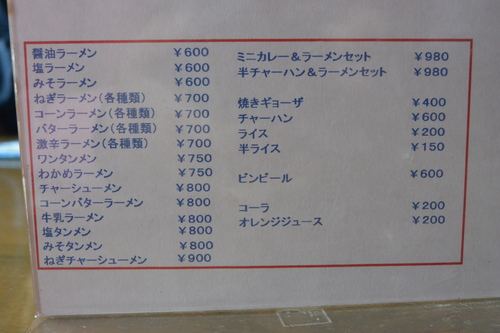 醤油ラーメン ￥600
塩ラーメン ￥600
みそラーメン ￥600
ねぎラーメン(各種類) ￥700
コーンラーメン(各種類) ￥700
バターラーメン(各種類) ￥700
激辛ラーメン(各種類) ￥700
ワンタンメン ￥750
わかめラーメン ￥750
チャーシューメン ￥800
コーンバターラーメン ￥800
牛乳ラーメン ￥800
塩タンメン ￥800
みそタンメン ￥800
ねぎチャーシューメン ￥900
ミニカレー＆ラーメンセット ￥980
半チャーハン＆ラーメンセット ￥980
焼きギョーザ ￥400
チャーハン ￥600
ライス ￥200
半ライス ￥150
ビンビール ￥600
コーラ ￥200
オレンジジュース ￥200